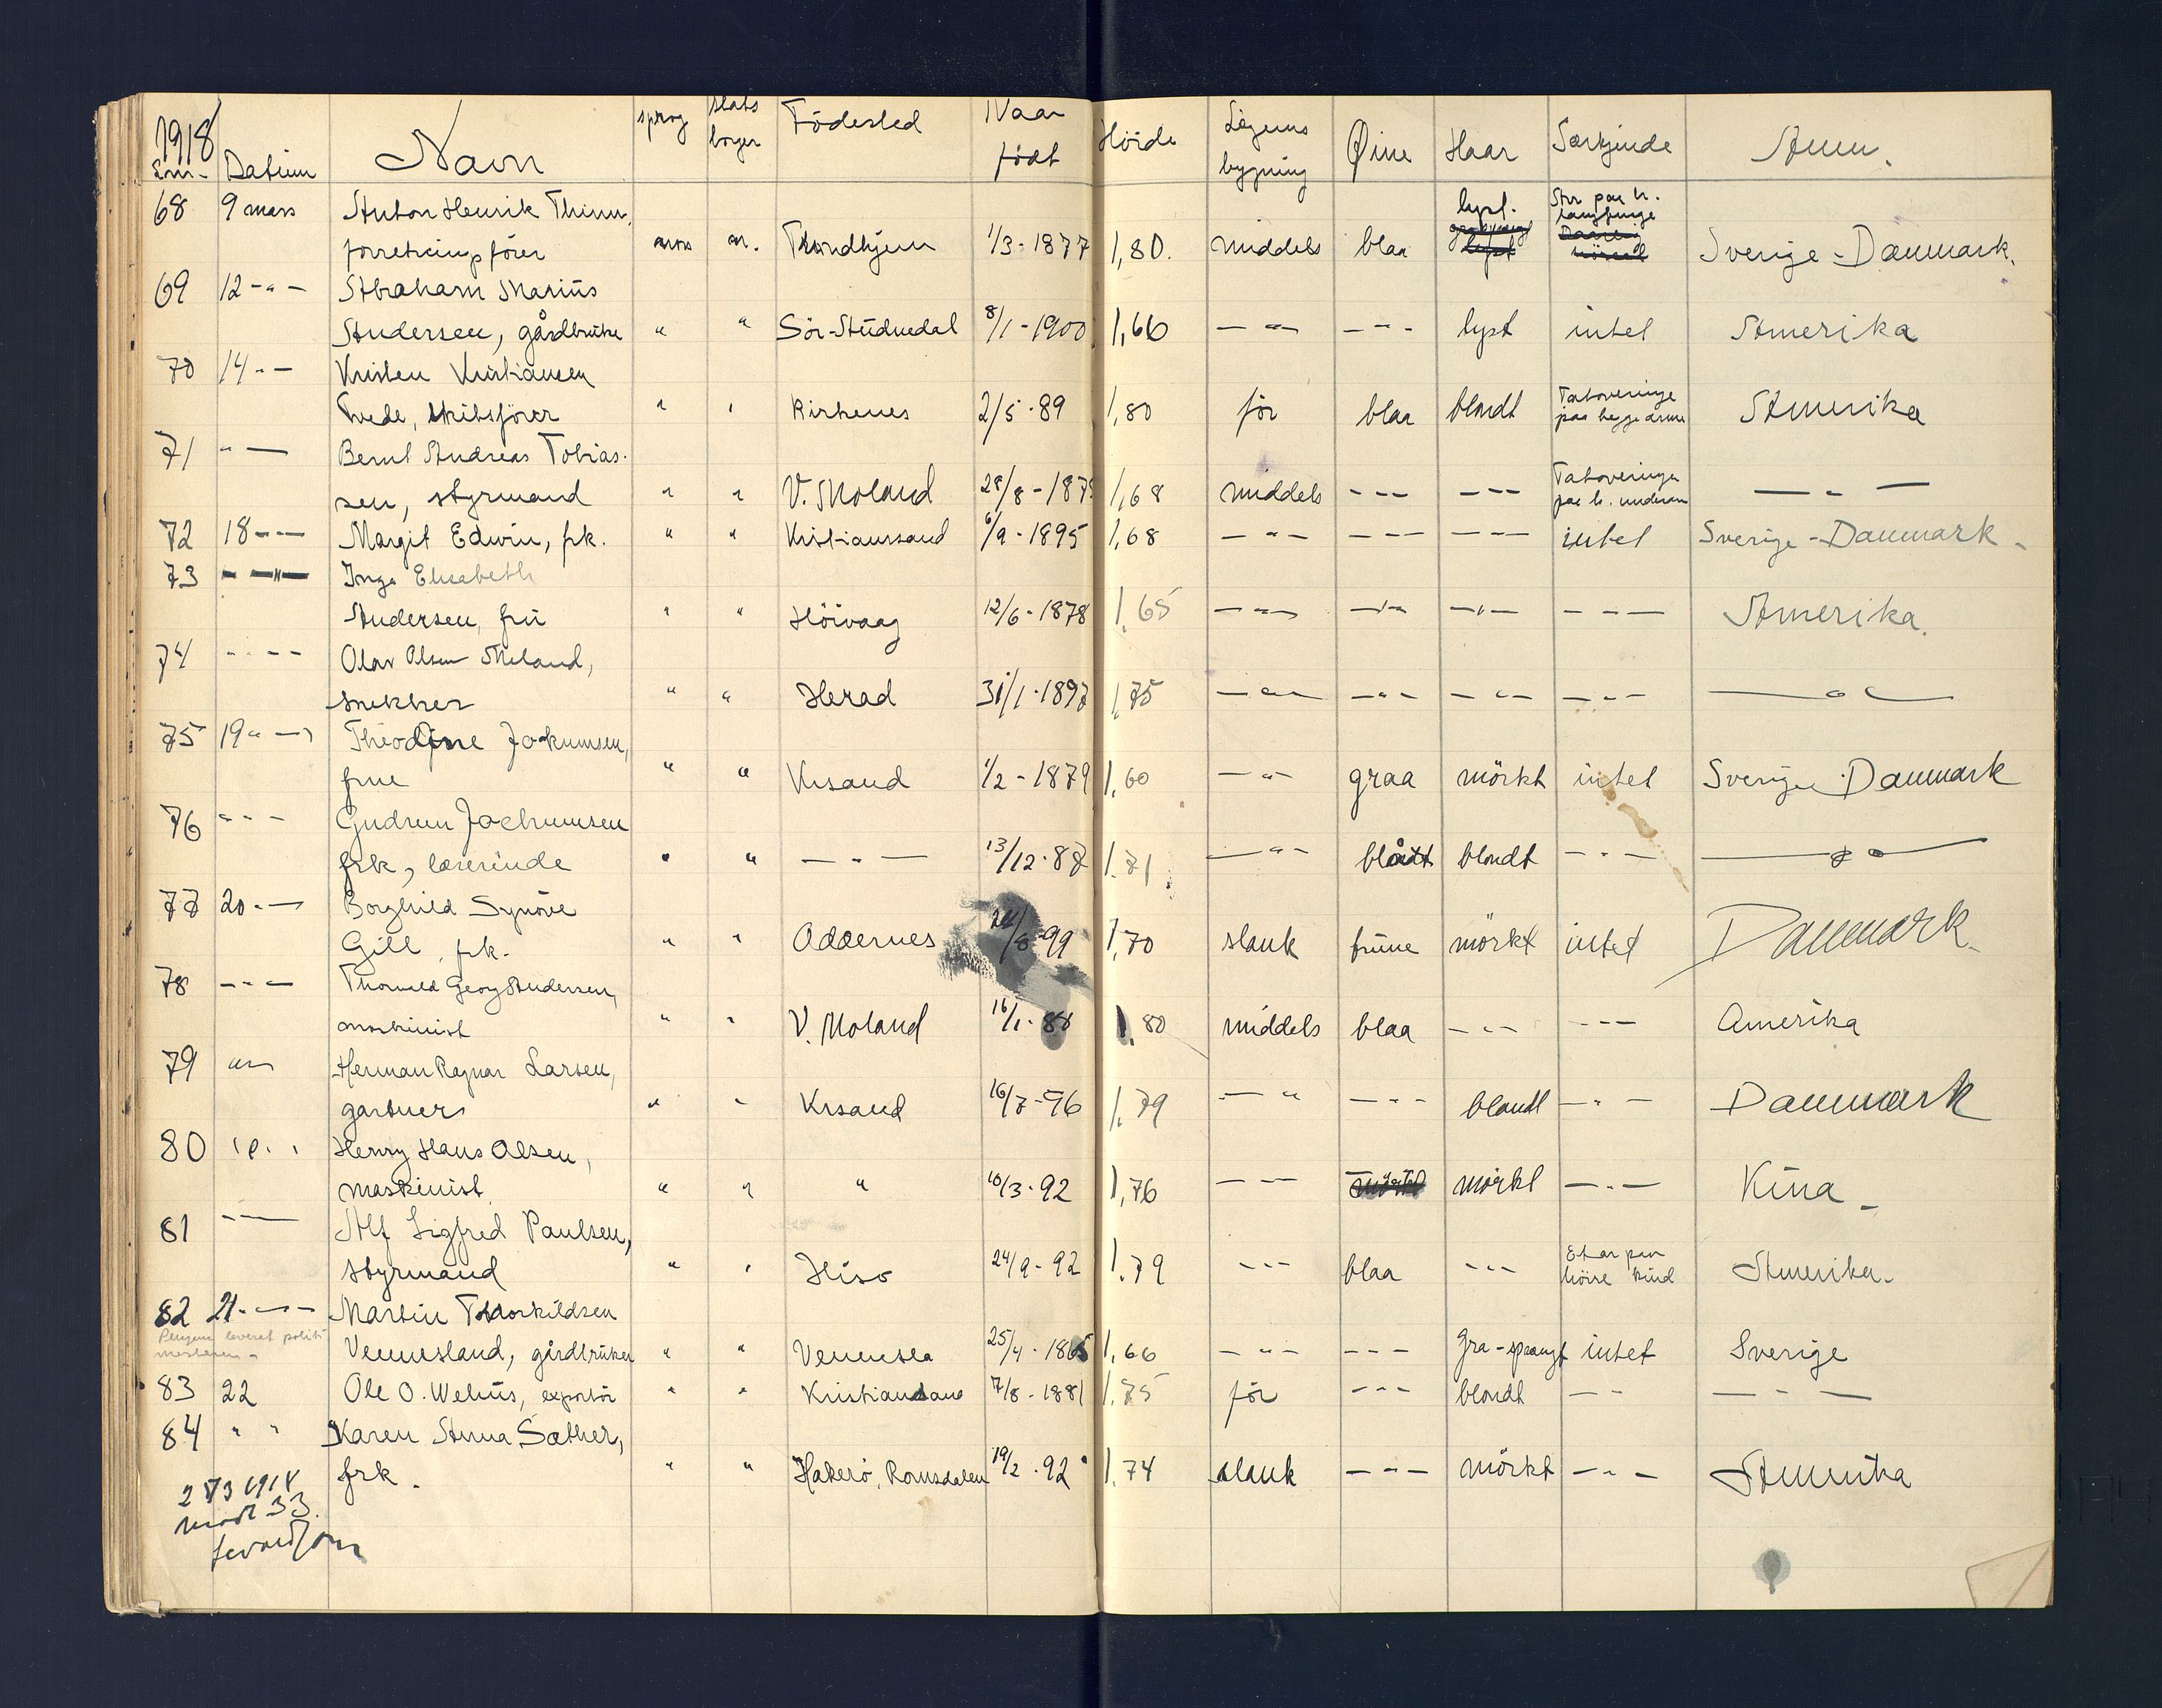 1918
Lm. Datum Navn sprog stats Födested Naar Höide Legems Øine Haar Særkjende Anm.
borger födt bygning
68 9 mars Anton Henrik Thinn, lyst. Arr paa h.
forretningsförer nors n. Trondhjem 1/3-1877 1,80. middels blaa Sverige-Danmark.
69 12 - " - Abraham Marius
Andersen, gårdbruker " " Sör-Audnedal 8/1-1900 1,66 - " - - " - lyst intet Amerika
70 14 - " - Kristen Kristiansen
Twede, skibsförer " " Kirkenes 2/5-89 1,80 för blaa blondt Tatoveringer paa begge arme Amerika
71 " - Bernt Andreas Tobias-
sen, styrmand " " V. Moland 28/8-187 1,68 middels - " - - " - Tatoveringer paa h. underarm - " -
72 18 - " - Margit Edwin, frk. " " Kristianssand 6/9-1895 1,68 - " - - " - - " - intet Sverige-Danmark.
73 - " - Inga Elisabeth
Andersen, fru " " Höivaag 12/6-1878 1,65 - " - - " - - " - - " - Amerika.
74 - " - Olav Olsen Meland,
snekker " " Herad 31/1-1897 1,75 - " - - " - - " - - " - - " -
75 19 " - Theodine Jokumsen,
frue " " Krsand 1/2-1879 1,60 - " - graa mörkt intet Sverige-Danmark
76 - " - Gudrun Jochumsen
frk, lærerinde " " - " - 13/12-87 1.71 - " - blådt blondt - " - - " -
77 20 - " - Borghild Synöve
Gill, frk. " " Oddernes 24/8-99 1,70 slank brune mörkt intet Danmark.
78 - " - Thorvald Georg Andersen,
maskinist " " V. Moland 16/1-88 1.80 middels blaa - " - - " - Amerika
79 " Herman Ragnar Larsen,
gartner " " Krsand 16/7-96 1,79 - " - - " - blondt - " - Danmark
80 " Henry Hans Olsen,
maskinist " " " 10/3-92 1,76 - " - mörkt mörkt - " - Kina -
81 - " - Alf Sigfred Paulsen,
styrmand " " Hisö 24/9-92 1.79 - " - blaa - " - Et ar paa höire kind Amerika.
82 21 - " - Martin Thorkildsen
Pengene leveret politimesteren -
Vennesland, gårdbruker " " Vennesla 25/4-1865 1,66 - " - - " - Gra-sprængt intet Sverige
83 22 Ole O. Wehus, exportör " " Kristiansand 7/8-1881 1.75 för - " - blondt - " - - " -
84 " " Karen Anna Sæther,
frk. " " Hakerö, Romsdalen 19/2-92 1.74 slank - " - mörkt - " - Amerika